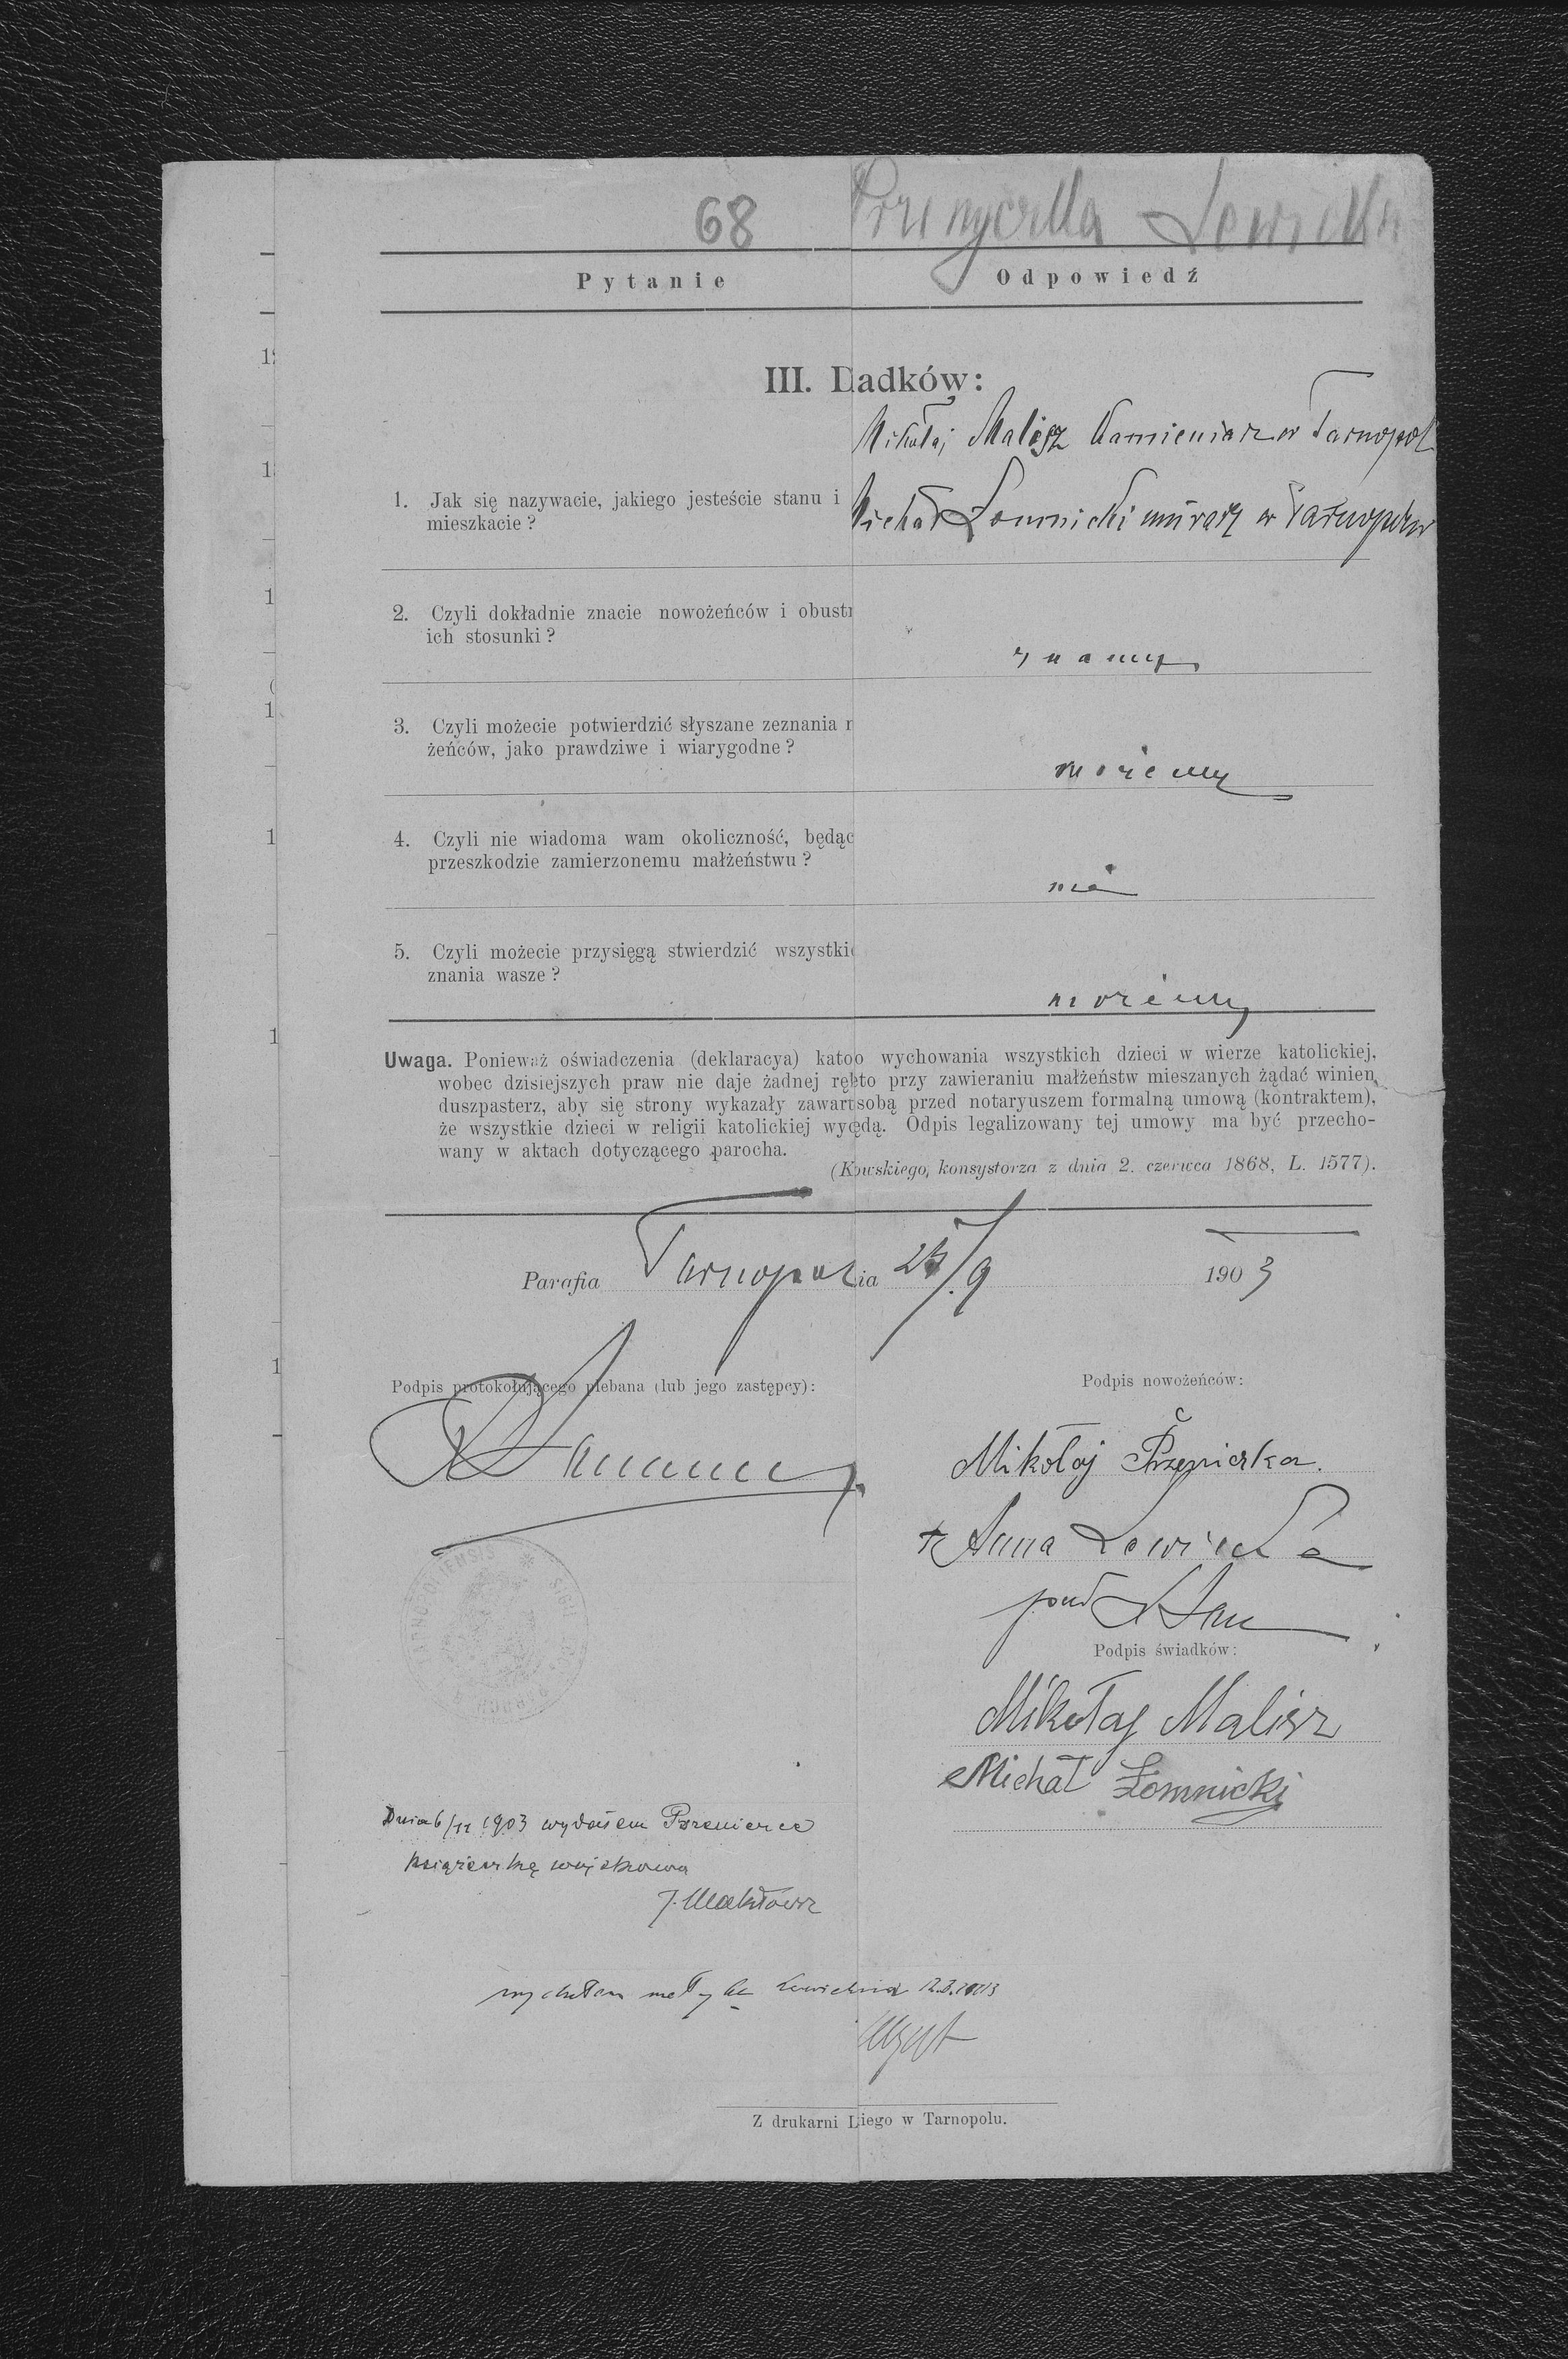 68 Lewicka
Pytanie Odpowiedź
III. Dadków:
Mikołaj Malisz kamieniarz w Tarnopol
1. Jak się nazywacie, jakiego jesteście stanu i
mieszkacie ?
Michał Łomnicki murarz w Tarnopolu
2. Czyli dokładnie znacie nowożeńców i obustr
ich stosunki ?
znamy
3. Czyli możecie potwierdzić słyszane zeznania n
żeńców, jako prawdziwe i wiarygodne ?
możemy
4. Czyli nie wiadoma wam okoliczność, będąc
przeszkodzie zamierzonemu małżeństwu ?
nie
5. Czyli możecie przysięgą stwierdzić wszystkie
znania wasze ?
możemy
Uwaga. Ponieważ oświadczenia (deklaracya) katoo wychowania wszystkich dzieci w wierze katolickiej,
wobec dzisiejszych praw nie daje żadnej rękto przy zawieraniu małżeństw mieszanych żądać winien
duszpasterz, aby się strony wykazały zawartsobą przed notaryuszem formalną umową (kontraktem),
że wszystkie dzieci w religii katolickiej wycędą. Odpis legalizowany tej umowy ma być przecho-
wany w aktach dotyczącego parocha.
(Kowskiego, konsystorza z dnia 2. czerwca 1868, L. 1577).
Parafia Tarnopol ia /9 1903
Podpis protokołującego plebana (lub jego zastępcy):
Podpis nowożeńców:
Mikołaj
Anna Lewicka
Podpis świadków:
Mikołaj Malisz
Michał Łomnicki
Dnia 6/11 1903 wydałem
książeczkę wojskową
Z drukarni Liego w Tarnopolu.